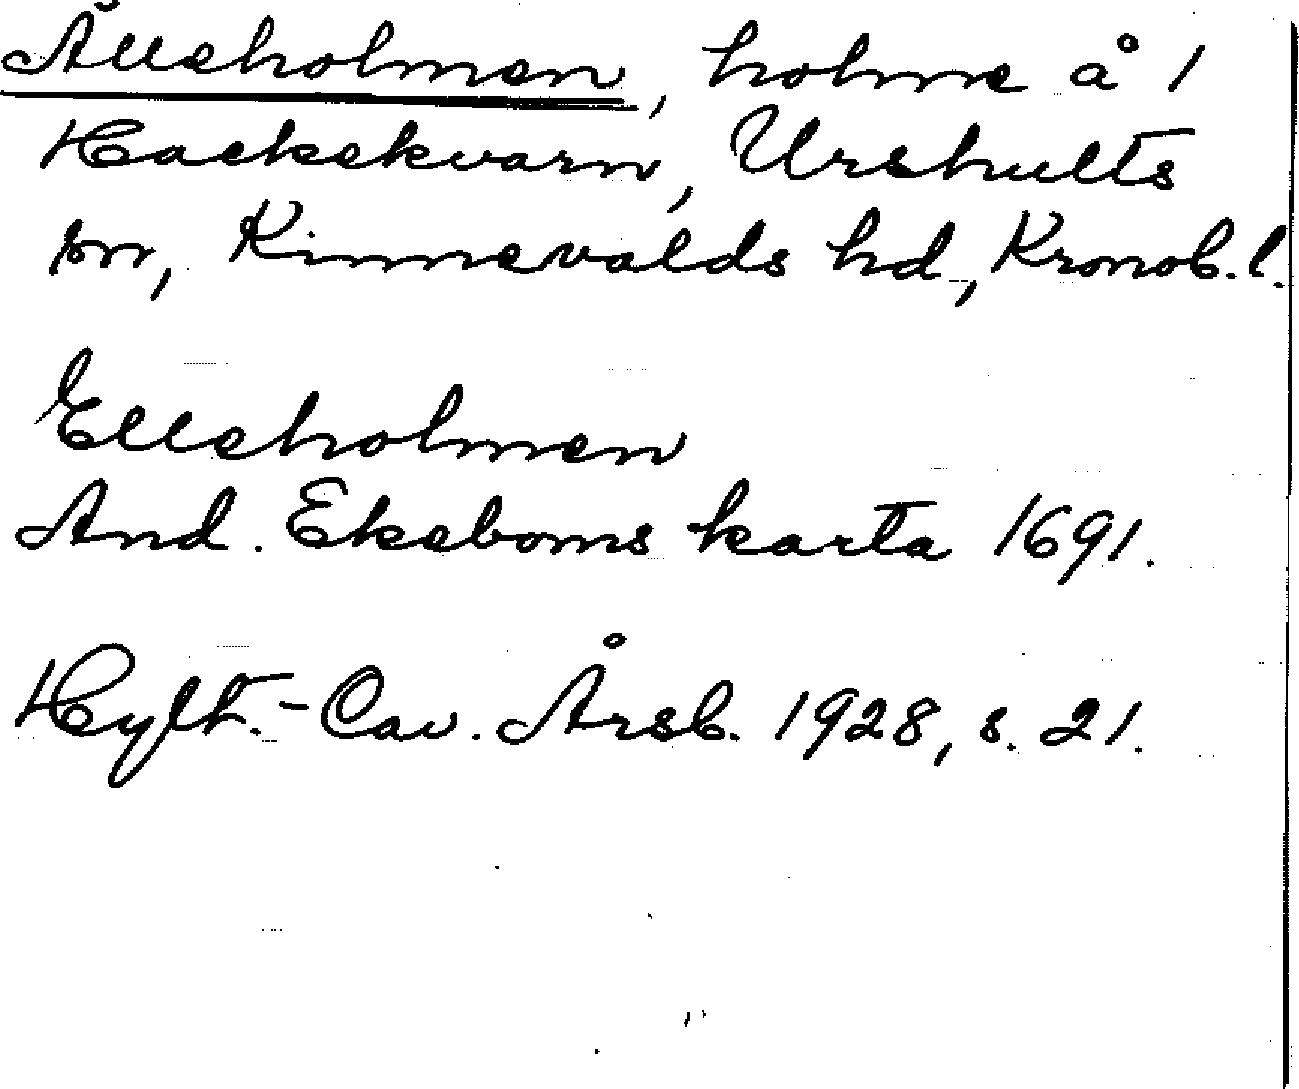 Ålleholmen, holme å 1
Hackekvarn, Urshults
sn, Kinnevalds hd, Kronob. l.
Elleholmen
And. Ekeboms karta 1691.
Hylt.-Cav. Årsb. 1928, s. 21.